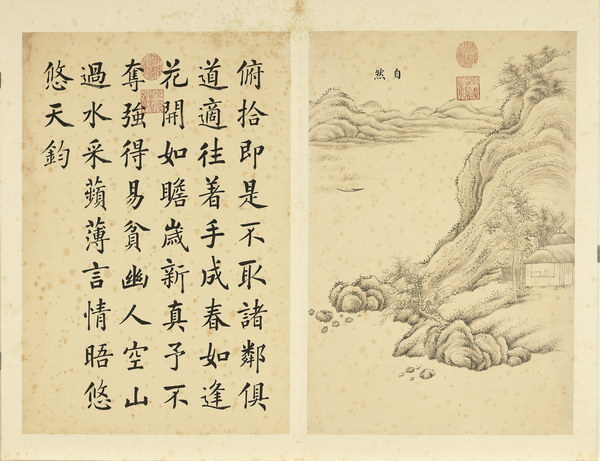 自然
俯拾即是不取諸鄰俱
道適往著手成春如逢
花開如瞻歲新真予不
奪強得易貧幽人空山
過水采蘋薄言情晤悠
悠天鈞